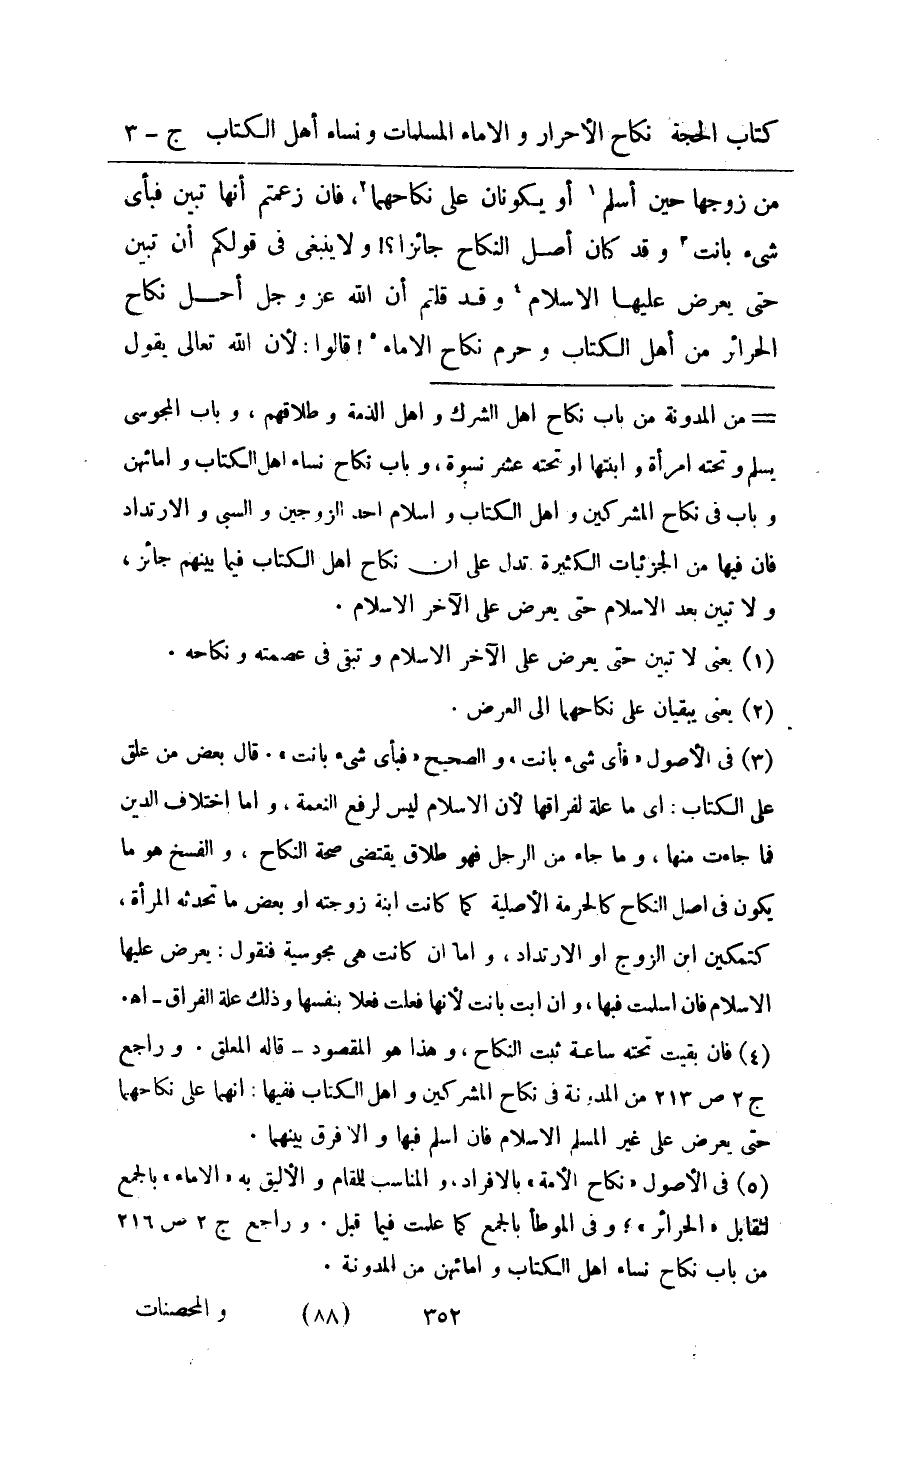 كتاب الحجة نكاح الأحرار و الاماء المسلمات و نساء أهل الكتاب ج – ٣
من زوجها حين أسلم ١ أو يكونان على نكاحهما ٢، فان زعمتم أنها تبين فبأى
شىء بانت ٣ و قد كان أصل النكاح جائزا؟! و لاينبغى فى قولكم أن تبين
حتى يعرض عليها الاسلام ٤ و قد قلتم أن الله عز و جل أحل نكاح
الحرائر من أهل الكتاب و حرم نكاح الاماء ٥! قالوا: لأن الله تعالى يقول
= من المدونة من باب نكاح اهل الشرك و اهل الذمة و طلاقهم ، و باب المجوسى
يسلم و تحته امرأة و ابنتها او تحته عشر نسوة، و باب نكاح نساء اهل الكتاب و امائهن
و باب فى نكاح المشركين و اهل الكتاب و اسلام احد الزوجين و السبى و الارتداد
فان فيها من الجزئيات الكثيرة تدل على ان نكاح اهل الكتاب فيما بينهم جائز ،
و لا تبين بعد الاسلام حتى يعرض على الآخر الاسلام .
(١) يعنى لا تبين حتى يعرض على الآخر الاسلام و تبقى فى عصمته و نكاحه .
(٢) يعنى يبقيان على نكاحهما الى العرض .
(٣) فى الأصول «فأى شىء بانت» و الصحيح «فبأى شىء بانت» . قال بعض من علق
على الكتاب : اى ما علة لفراقها لأن الاسلام ليس لرفع النعمة ، و اما اختلاف الدين
فما جاءت منها ، و ما جاء من الرجل فهو طلاق يقتضى صحة النكاح ، و الفسخ هو ما
يكون فى اصل النكاح كالحرمة الأصلية كما كانت ابنة زوجته او بعض ما تحدثه المرأة ،
كتمكين ابن الزوج او الارتداد ، و اما ان كانت هى مجوسية فنقول : يعرض عليها
الاسلام فان اسلمت فبها ، و ان ابت بانت لأنها فعلت فعلا بنفسها وذلك علة الفراق – اه.
(٤) فان بقيت تحته ساعة ثبت النكاح ، و هذا هو المقصود – قاله المعلق . و راجع
ج ٢ ص ٢١٣ من المدونة فى نكاح المشركين و اهل الكتاب ففيها : انهما على نكاحهما
حتى يعرض على غير المسلم الاسلام فان اسلم فبها و الا فرق بينهما .
(٥) فى الأصول «نكاح الأمة» بالافراد، و المناسب للمقام و الأليق به «الاماء» بالجمع
لتقابل «الحرائر»؛ و فى الموطأ بالجمع كما علمت فيما قبل . و راجع ج ٢ ص ٢١٦
من باب نكاح نساء اهل الكتاب و امائهن من المدونة .
٣٥٢ (٨٨) و المحصنات